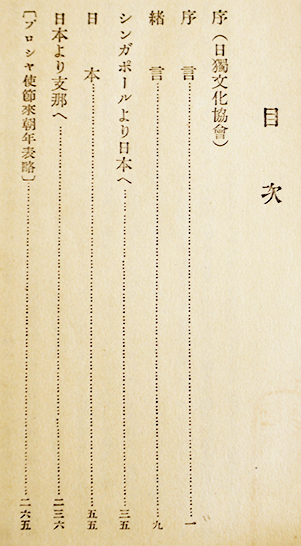 目次
序（日獨文化協會）
序言……一
緒言……九
シンガポールより日本へ……三五
日本……五五
日本より支那へ……二三六
〔プロシヤ使節來朝年表略〕……二六五